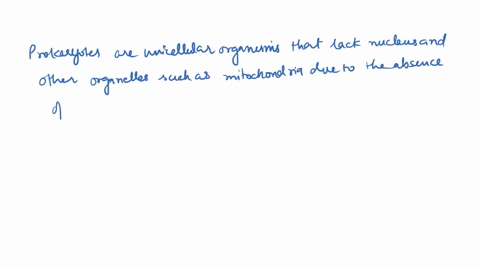 Prokaryotes are unicellular organisms that lack nucleus and
other organelles such as mitochondria due to the absence
of